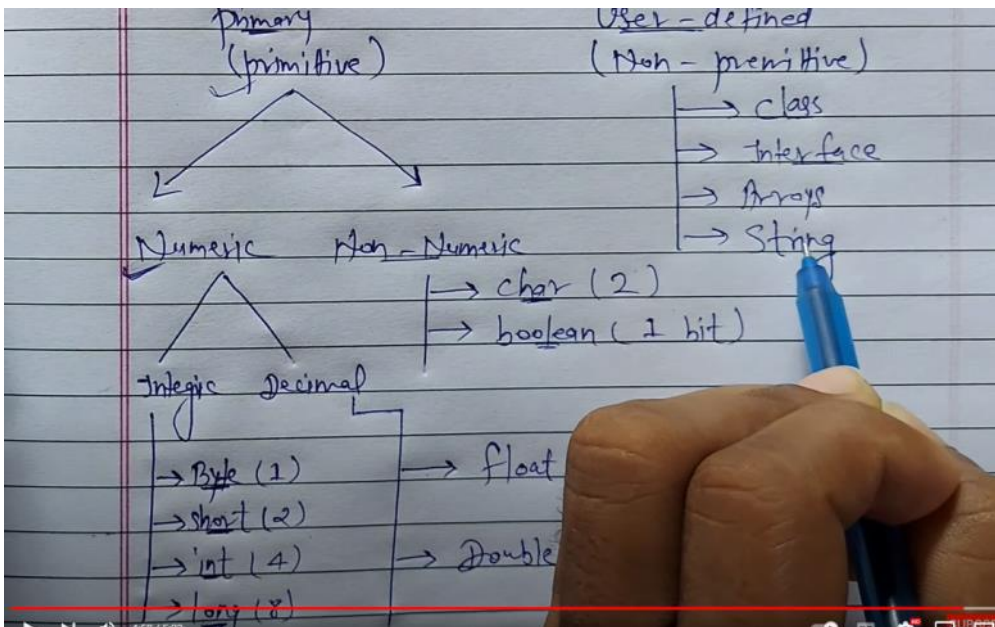 Primary
(primitive)
User-defined
(Non-premittive)
→ class
→ Interface
→ Arrays
→ String
Numeric
Non-Numeric
→ char (2)
→ boolean (1 bit)
Integic
Decimal
→ Byte (1)
→ short (2)
→ int (4)
→ long (8)
→ float
→ Double